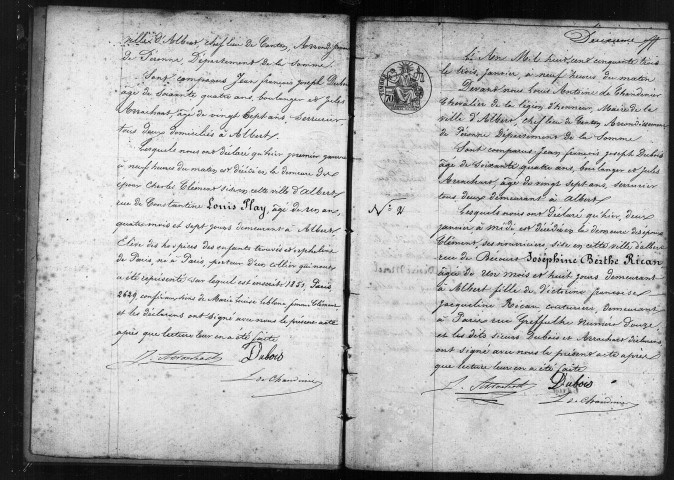 ville d'Albert, chef lieu de Canton, Arrondissement
de Péronne Département de la Somme
Sont comparus Jean françois joseph Dubois
âgé de Soixante quatre ans, boulanger et Jules
Arrachart, âgé de vingt Sept ans, Serrurier
tous deux domiciliés à Albert
Lesquels nous ont déclaré qu'hier premier janvier
à neuf heures du matin est décédé en la demeure du
Sieur Charles Clément sise en cette ville d'Albert
rue de Constantine Louis Play, âgé de un an,
quatre mois et sept jours demeurant à Albert
Elève des hospices des enfants trouvés et orphelins
de Paris, né à Paris, porteur d'un collier qui nous
a été représenté sur lequel est inscrit 1851, Paris
2629, Marie Louise Leblanc femme Clément
et les déclarants ont signé avec nous le présent acte
après que lecture leur en a été faite
J. Arrachart Dubois
L. de Chandenier
Deuxième
L'An Mil huit cent cinquante trois
le trois Janvier, à neuf heures du matin
Devant nous Louis Antoine de Chandenier
Chevalier de la légion d'honneur, Maire de la
ville d'Albert, chef lieu de Canton Arrondissement
de Péronne Département de la Somme
Sont comparus Jean françois joseph Dubois
âgé de Soixante quatre ans, boulanger et Jules
Arrachart, âgé de vingt Sept ans, serrurier
tous deux demeurant à Albert
N° 2
Lesquels nous ont déclaré qu'hier, deux
janvier, à midi, est décédée en la demeure des époux
Clément, ses nourriciers, sise en cette ville d'Albert
rue de Joséphine Berthe Rican
âgée de un mois et huit jours demeurant
à Albert fille de Victorine françoise
Jacqueline Rican couturière, demeurant
à Paris rue Greffulhe numéro
et les dits sieurs Dubois et Arrachart déclarants
ont signé avec nous le présent acte après
que lecture leur en a été faite
J. Arrachart Dubois
L. de Chandenier